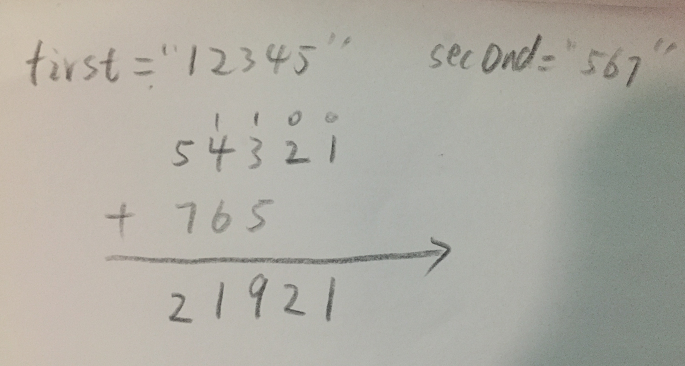 first="12345" second="567"
1 1 0 0
5 4 3 2 1
+ 7 6 5
2 1 9 2 1